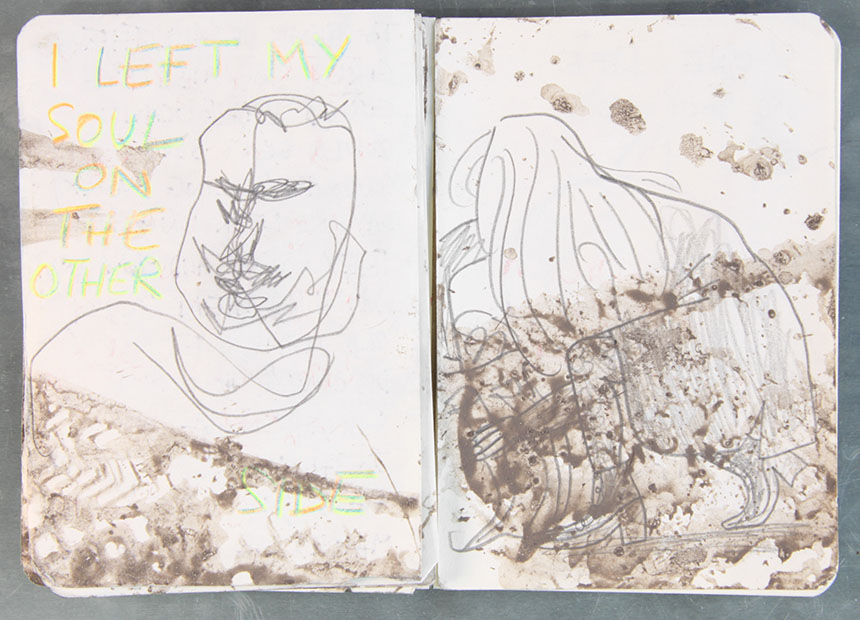 I LEFT MY
SOUL
ON
THE
OTHER
SIDE